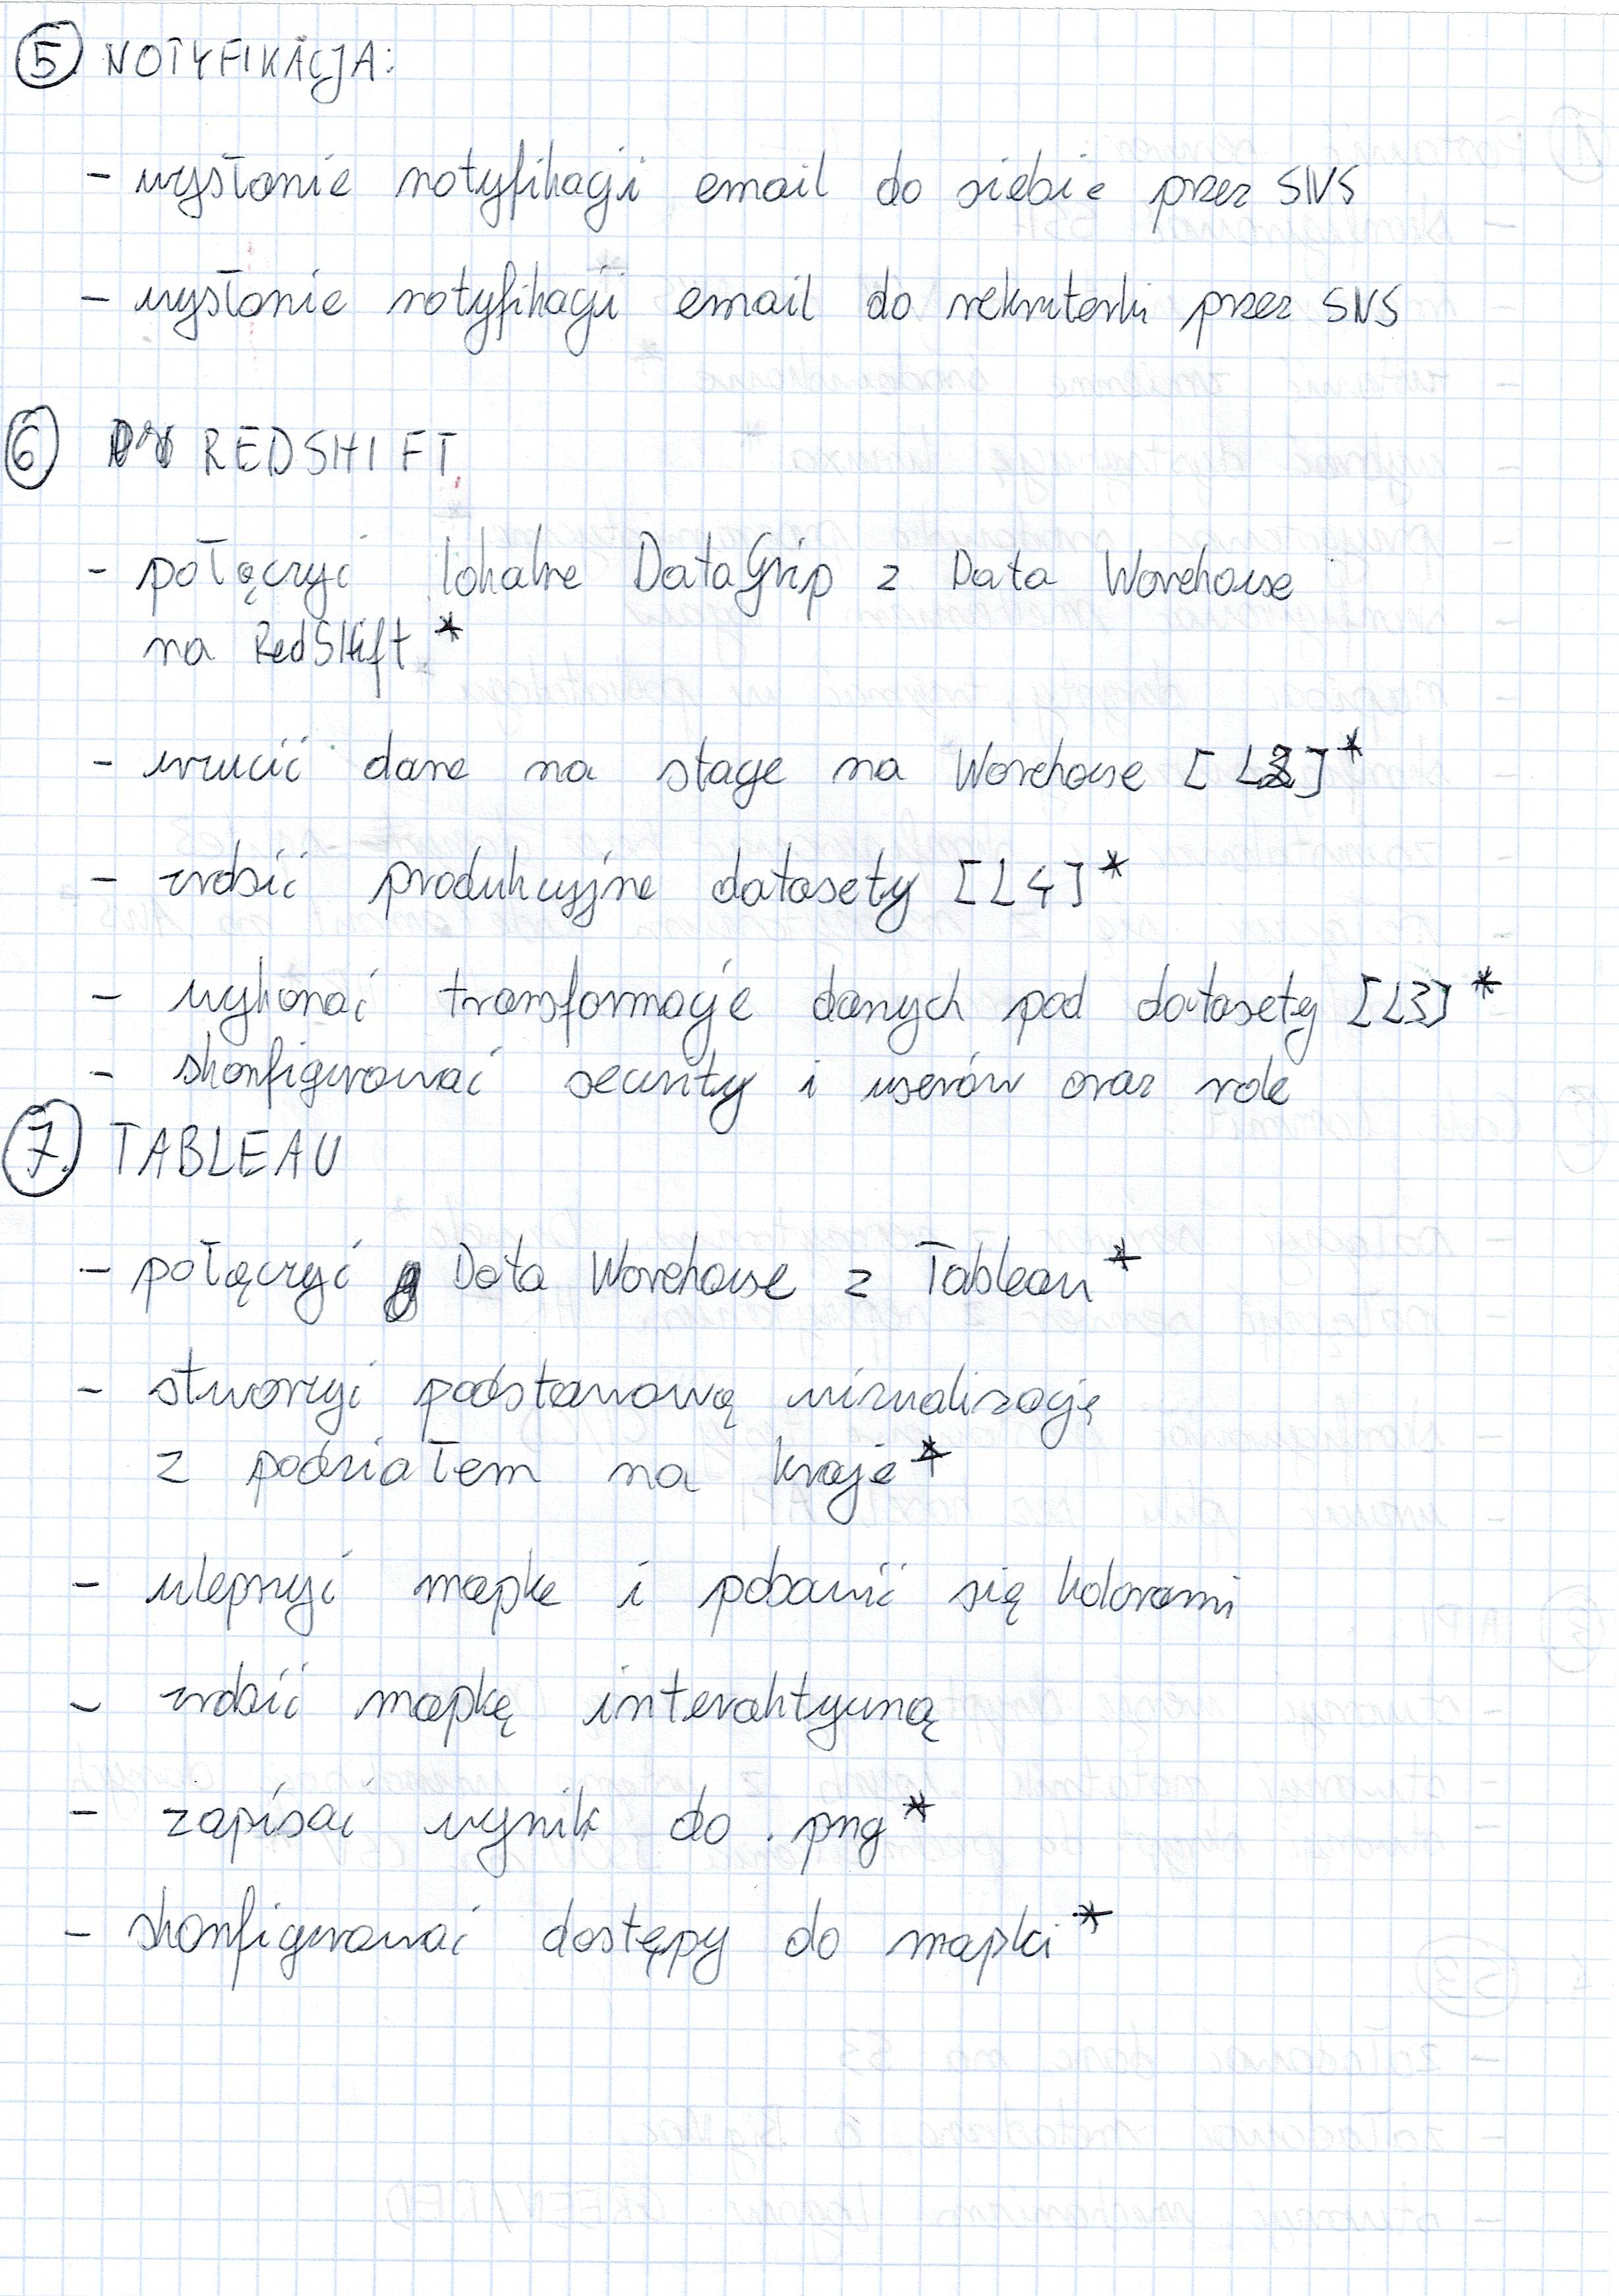 5 NOTYFIKACJA:
- wysłanie notyfikacji email do siebie przez SNS
- wysłanie notyfikacji email do rekruterki przez SNS
6 REDSHIFT
- połączyć lokalne DataGrip z Data Warehouse
na RedSHift *
- wrzucić dane na stage na Warehouse [L2]*
- zrobić produkcyjne datasety [L4]*
- wykonać transformacje danych pod datasety [L3]*
- skonfigurować security i userów oraz role
7. TABLEAU
- połączyć Data Warehouse z Tableau*
- stworzyć podstawową wizualizację
z podziałem na kraje*
- ulepszyć mapke i pobawić się kolorami
- zrobić mapkę interaktywną
- zapisać wynik do .png*
- skonfigurować dostępy do mapki*